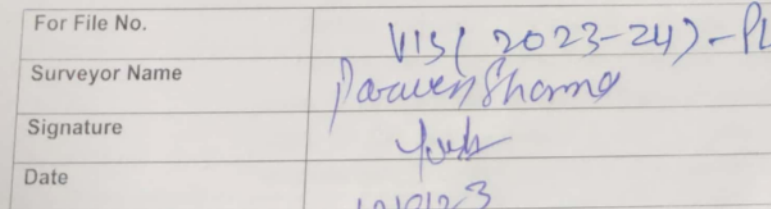 For File No. VIS(2023-24)-PL
Surveyor Name Parveen Sharma
Signature
Date